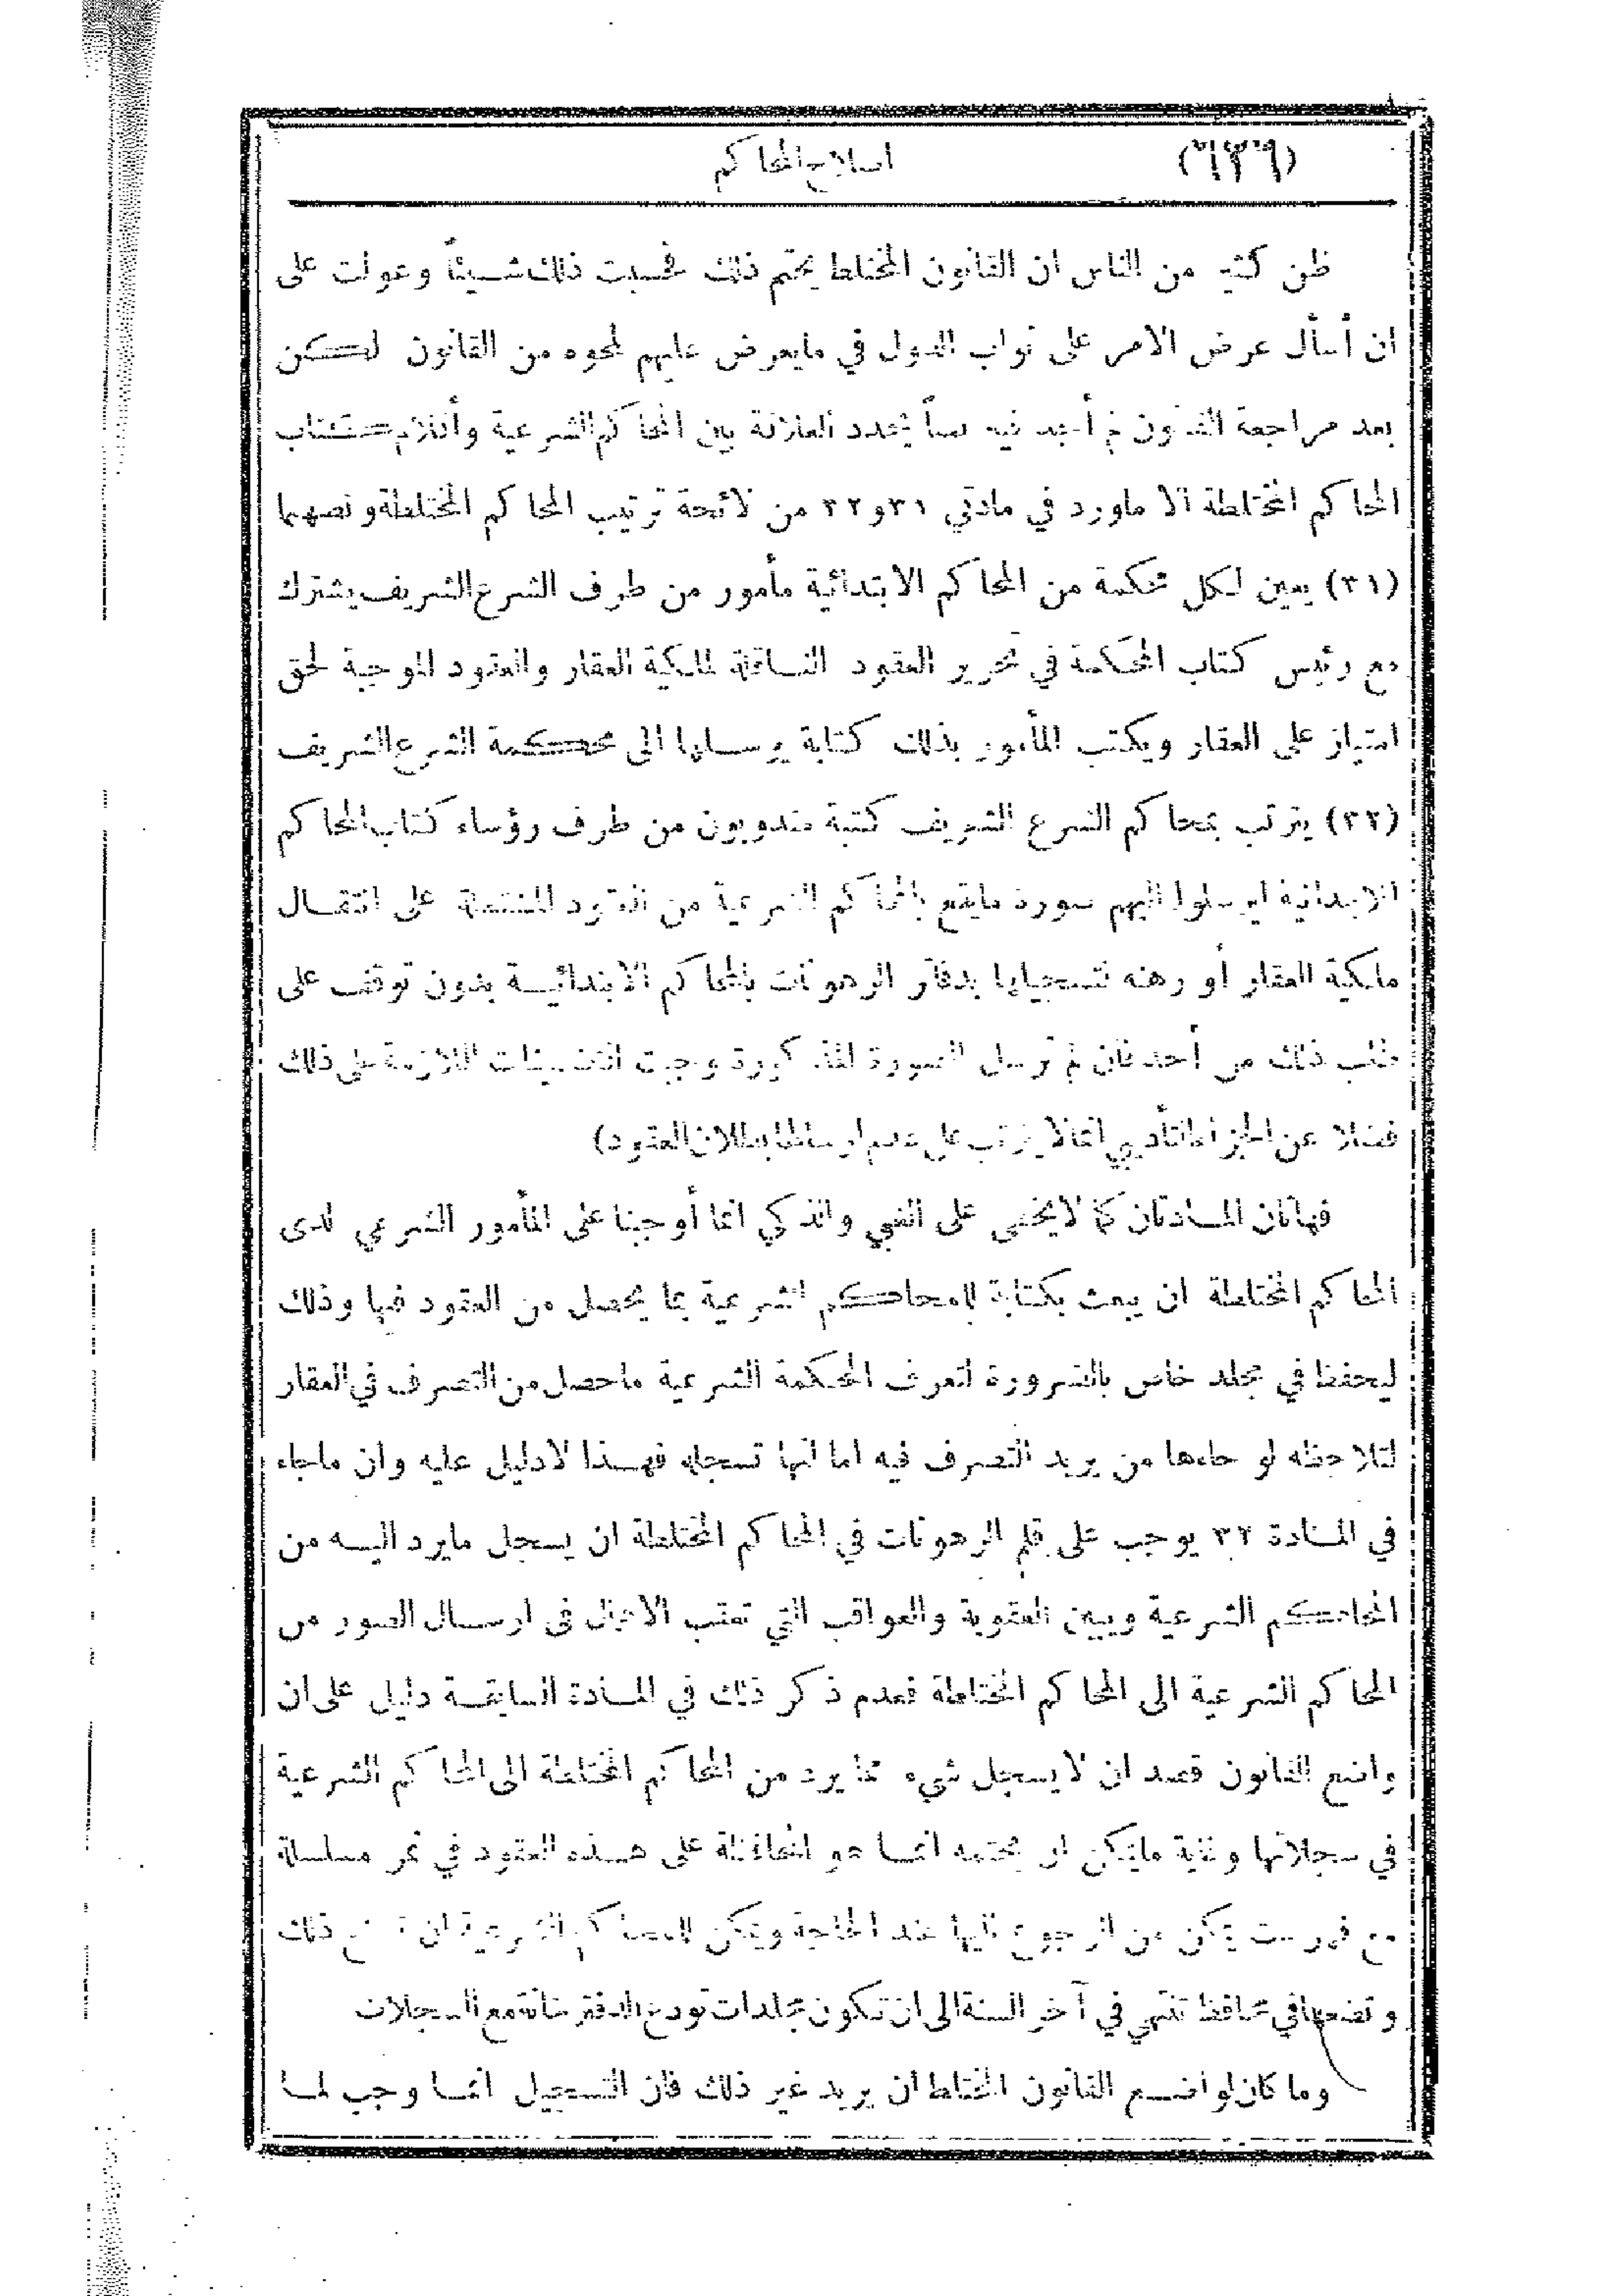 (٦٣٦) اصلاح المحاكم
ظن كثير من الناس ان القانون المختلط يحتم ذلك فحسبت ذلك شيئاً وعولت على
ان أسأل عرض الامر على نواب الدول في مايعرض عليهم لمحوه من القانون لكن
بعد مراجعة القانون لم أجد فيه نصاً يحدد العلاقة بين المحاكم الشرعية وأقلام كتاب
المحاكم المختلطة الا ماورد في مادتي ٣١ و٣٢ من لائحة ترتيب المحاكم المختلطة ونصهما
(٣١) يعين لكل محكمة من المحاكم الابتدائية مأمور من طرف الشرع الشريف يشترك
مع رئيس كتاب المحكمة في تحرير العقود الناقلة لملكية العقار والعقود الموجبة لحق
امتياز على العقار ويكتب المأمور بذلك كتابة يرسلها الى محكمة الشرع الشريف
(٣٢) يترتب بمحاكم الشرع الشريف كتبة مندوبون من طرف رؤساء كتاب المحاكم
الابتدائية ليرسلوا اليهم صورة مايقع بالمحاكم الشرعية من العقود المشتملة على انتقال
ملكية العقار أو رهنه لتسجيلها بدفاتر الرهونات بالمحاكم الابتدائية بدون توقف على
طلب ذلك من أحد فان لم ترسل الصورة المذكورة وجبت التضمينات اللازمة على ذلك
فضلا عن الجزاء التأديبي انما لا يترتب على عدم ارسالها بطلان العقود)
فهاتان المادتان كما لايخفى على الغبي والذكي انما أوجبتا على المأمور الشرعي لدى
المحاكم المختلطة ان يبعث بكتابة للمحاكم الشرعية بما يحصل من العقود فيها وذلك
ليحفظ في مجلد خاص بالضرورة لتعرف المحكمة الشرعية ماحصل من التصرف في العقار
لتلاحظه لو جاءها من يريد التصرف فيه اما انها تسجله فهذا لادليل عليه وان ماجاء
في المادة ٣٢ يوجب على قلم الرهونات في المحاكم المختلطة ان يسجل مايرد اليه من
المحاكم الشرعية ويبين العقوبة والعواقب التي تعقب الاهمال في ارسال الصور من
المحاكم الشرعية الى المحاكم المختلطة فعدم ذكر ذلك في المادة السابقة دليل على ان
واضع القانون قصد ان لا يسجل شيء مما يرد من المحاكم المختلطة الى المحاكم الشرعية
في سجلاتها وغاية مايمكن ان يحتمه انما هو المحافظة على هذه العقود في نمر مسلسلة
مع فهرست يمكن من الرجوع اليها عند الحاجة ويمكن للمحاكم الشرعية ان ذلك
وتضعها في محافظ تنتهي في آخر السنة الى ان تكون مجلدات تودع الدفترخانة مع السجلات
وما كان لواضع القانون المختلط ان يريد غير ذلك فان التسجيل انما وجب لما